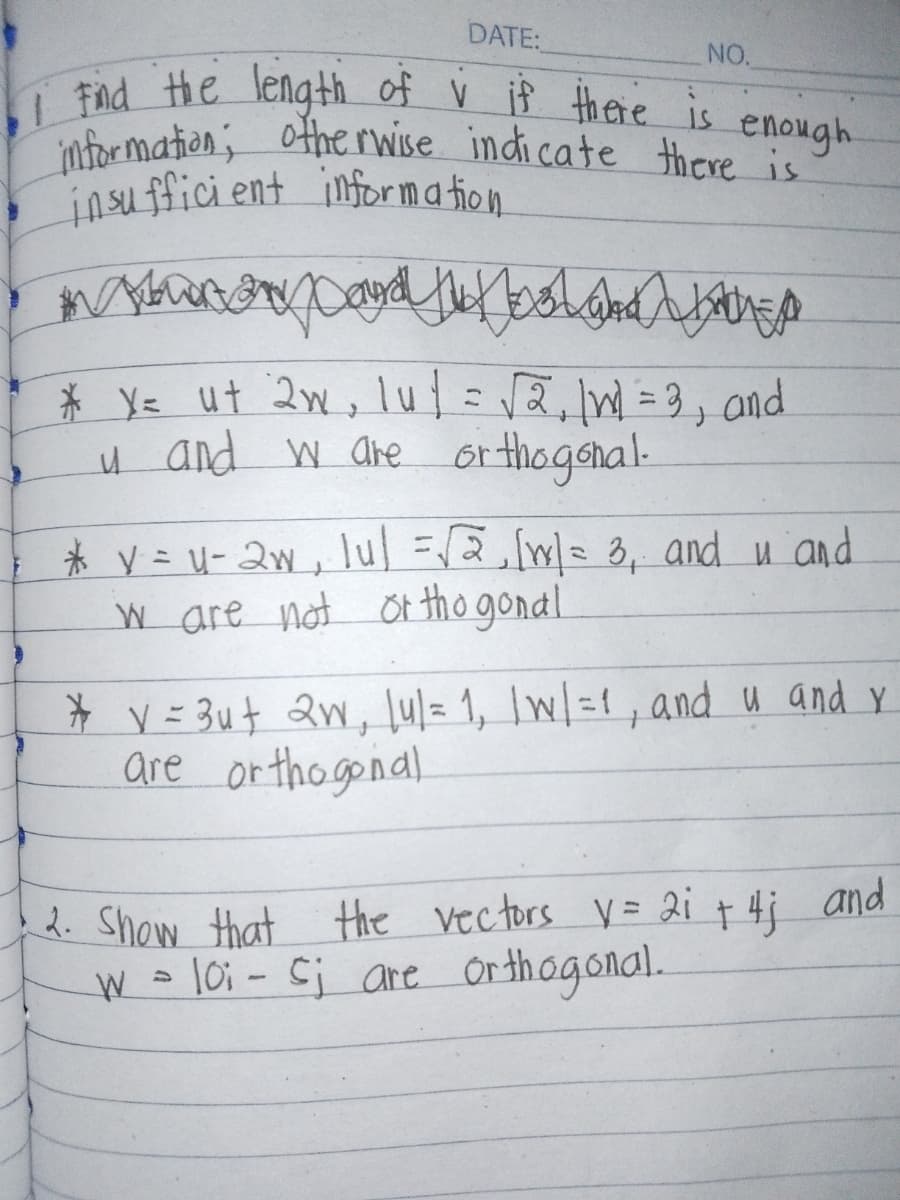 DATE:
NO.
1 Find the length of v if there is enough
information; otherwise indicate there is
insufficient information
* v= u+ 2w, |u| = √2, |w| = 3, and
u and w are orthogonal.
* v = u- 2w, |u| = √2, |w| = 3, and u and
w are not orthogonal
* v = 3u+ 2w, |u| = 1, |w|=1, and u and v
are orthogonal
2. Show that the vectors v = 2i + 4j and
w = 10i - 5j are orthogonal.